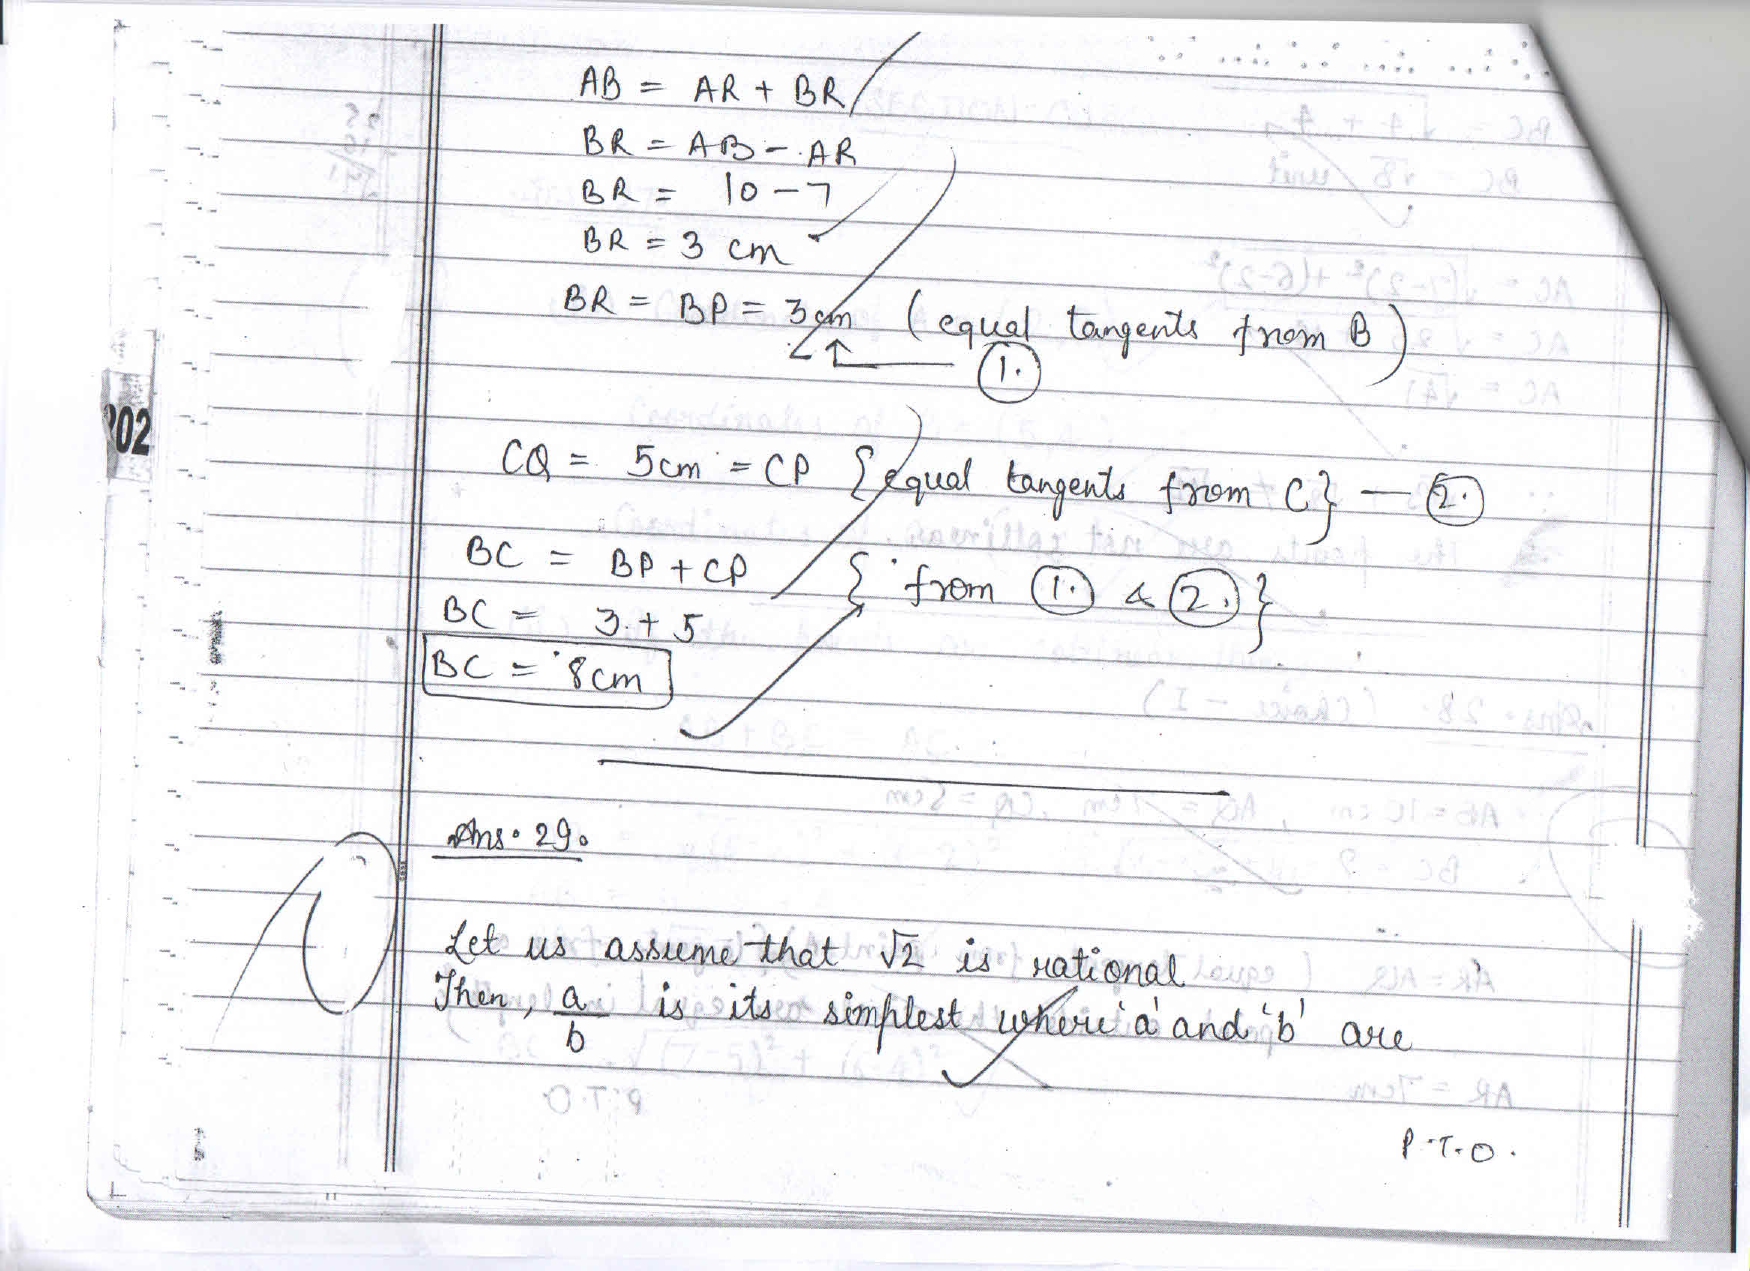 AB = AR + BR
BR = AB - AR
BR = 10 - 7
BR = 3 cm
BR = BP = 3cm (equal tangents from B)
1.
202
CQ = 5cm = CP {equal tangents from C} — 2.
BC = BP + CP {from 1. & 2.}
BC = 3 + 5
BC = 8cm
Ans. 29.
Let us assume that √2 is rational
Then, a/b is its simplest where 'a' and 'b' are
P.T.O.